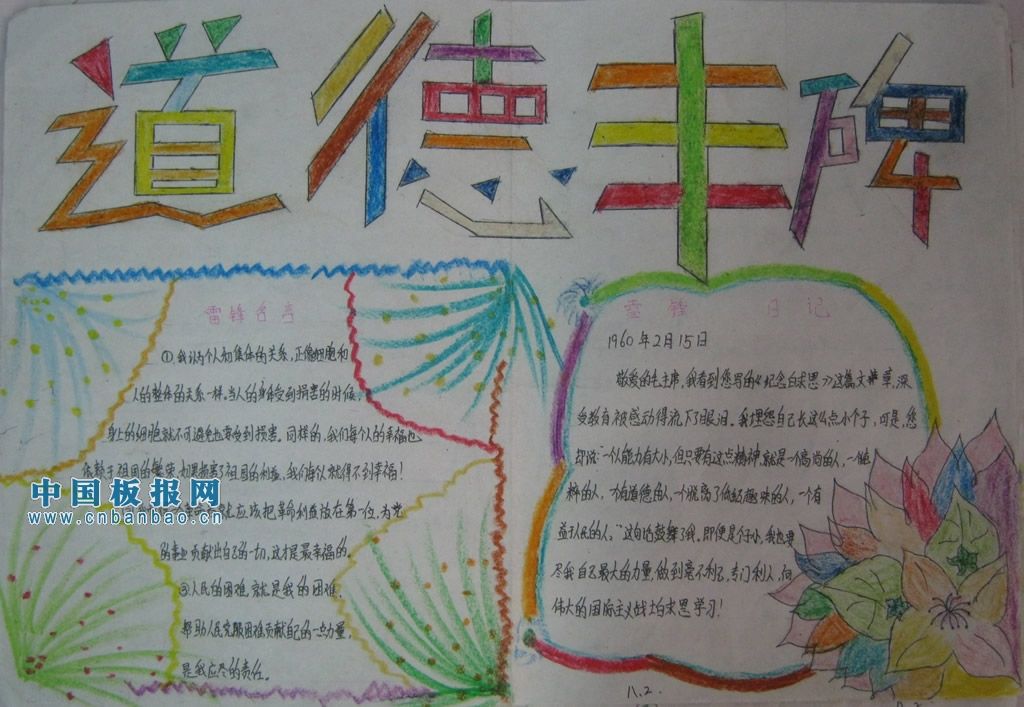 道德丰碑
雷锋名言
①我认为个人和集体的关系,正像细胞和
人的整体的关系一样。当人的身体受到损害的时候,
身上的细胞就不可避免也要受到损害。同样的,我们每个人的幸福也
依赖于祖国的繁荣,如果损害了祖国的利益,我们每个人就得不到幸福!
就应该把革命利益放在第一位,为党
的事业贡献出自己的一切,这才是最幸福的。
③人民的困难,就是我的困难,
帮助人民克服困难贡献自己的一点力量,
是我应尽的责任。
雷锋日记
1960年2月15日
敬爱的毛主席,我看到您写的《纪念白求恩》这篇文章,深
受教育被感动得流下了眼泪。我埋怨自己长这么点小个子,可是,您
却说:一个人能力有大小,但只要有这点精神,就是一个高尚的人,一个纯
粹的人,一个有道德的人,一个脱离了低级趣味的人,一个有
益于人民的人。”这句话鼓舞了我。即便是个子小,我也要
尽我自己最大的力量,做到毫不利己,专门利人,向
伟大的国际主义战士白求恩学习!
中国板报网
www.cnbanbao.cn